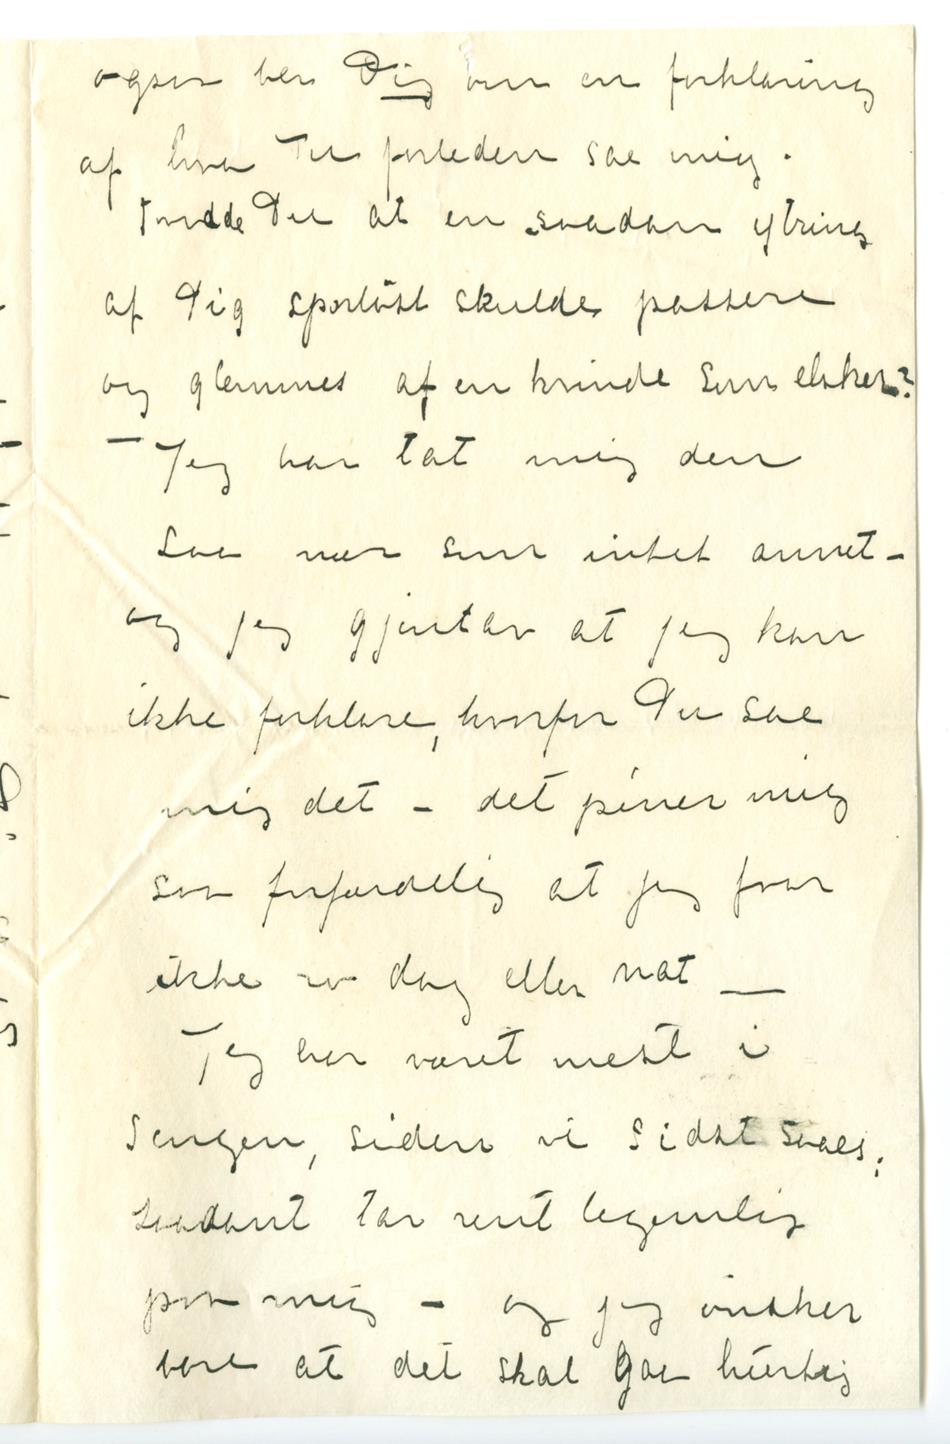 ogsaa ber Dig om en forklaring
af hva Du forleden sae mig.
Trodde Du at en saadan ytring
af Dig sporløst skulde passere
og glemmes af en kvinde som elsker?
– Jeg har tat mig den
saa nær som intet annet –
og jeg gjentar at jeg kan
ikke forklare, hvorfor Du sae
mig det – det piner mig
saa forfærdelig at jeg faar
ikke ro dag eller nat —
Jeg har været mest i
sengen, siden vi sidst saaes;
saadant tar rent legemlig
paa mig – og jeg ønsker
bare at det skal gaa hurtig